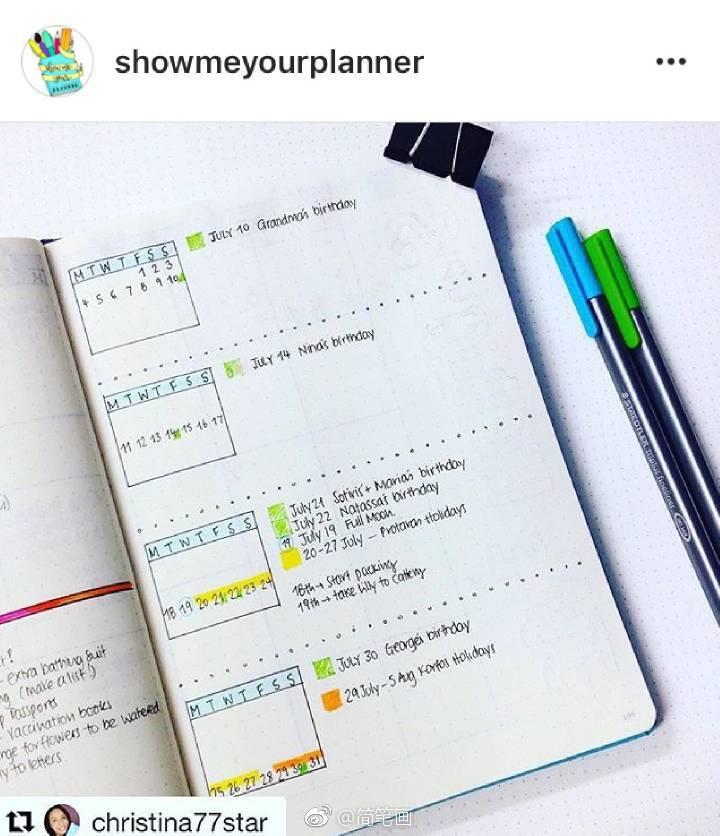 showmeyourplanner
JULY 10 Grandma's birthday
M T W T F S S
1 2 3
4 5 6 7 8 9 10
JULY 14 Nina's birthday
M T W T F S S
11 12 13 14 15 16 17
July 21 Sotiris + Maria's birthday
July 22 Natassa's birthday
19 July 19 Full Moon
20-27 July – Protaran Holidays
M T W T F S S
18 19 20 21 22 23 24
18th → Start packing
19th → take Lilly to Cattery
July 30 George's birthday
29 July – 5 Aug Korfos Holidays
M T W T F S S
25 26 27 28 29 30 31
- Extra bathing suit
(make a list!)
Passports
- Vaccination books
for flowers to be watered
to letters
STAEDTLER triplus fineliner
christina77star
@简笔画